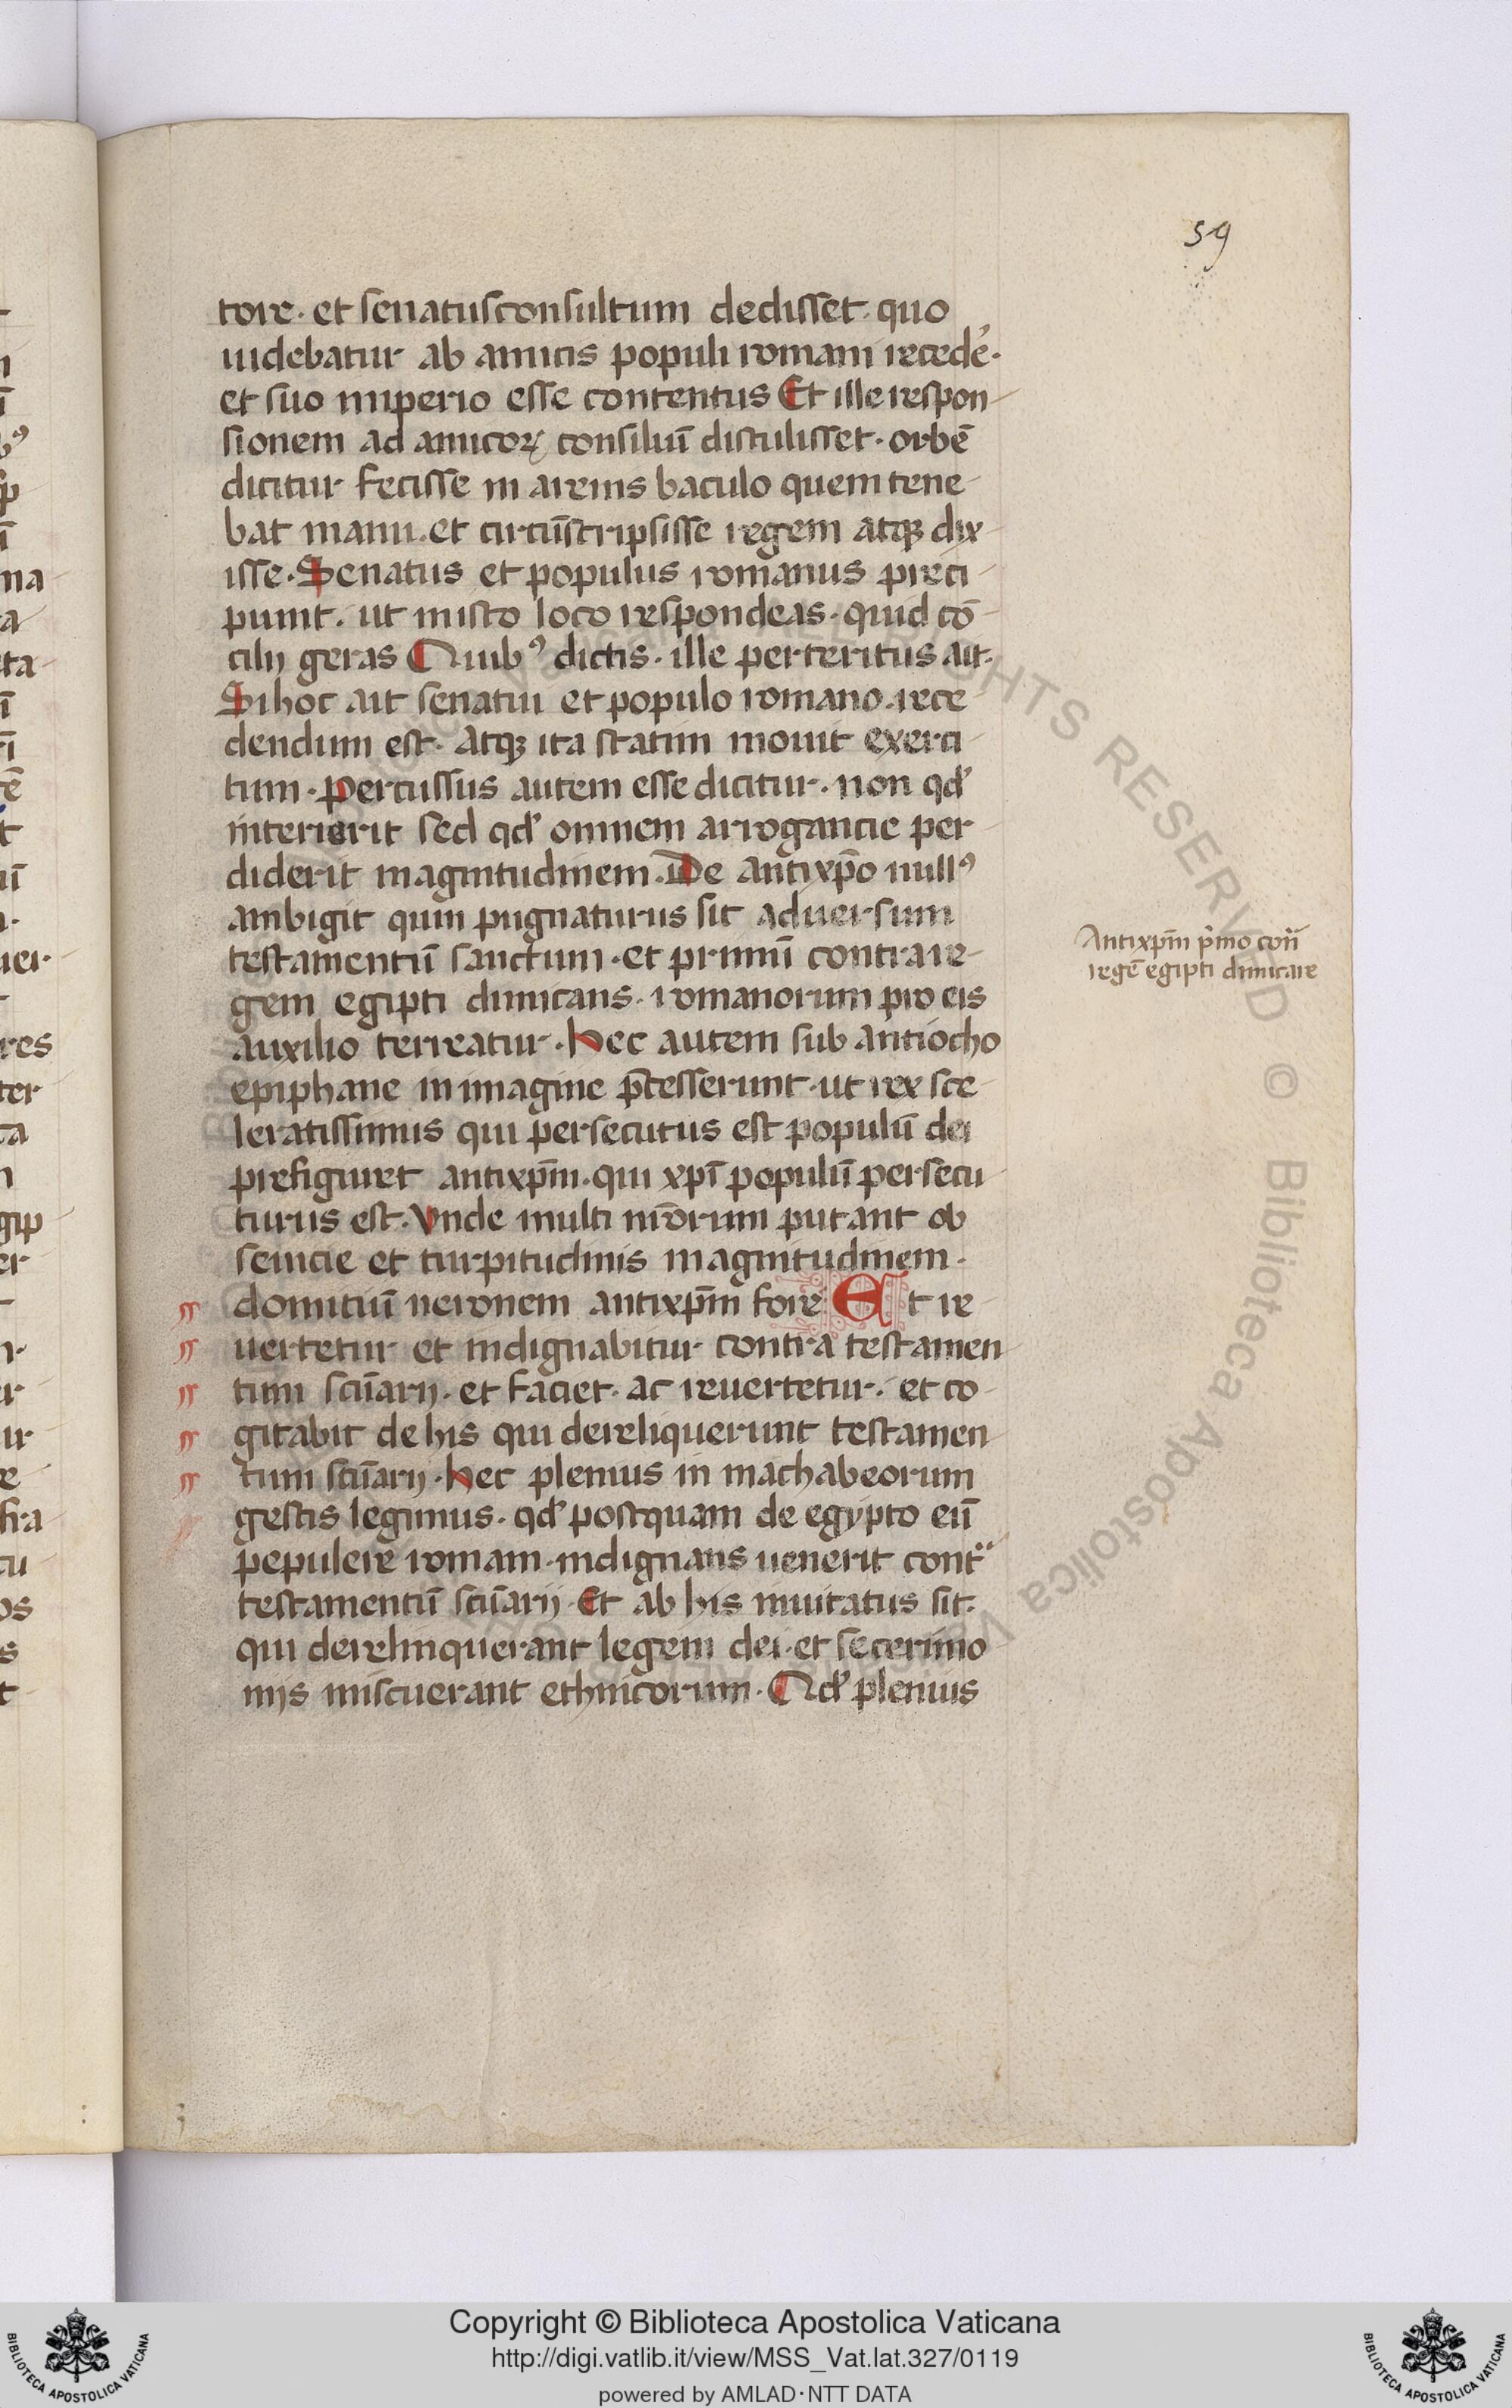 59
tore. et senatusconsultum dedisset. quo
uidebatur ab amicis populi romani recede᷒.
et suo imperio esse contentus Et ille respon-
sionem ad amicoꝝ consiliū distulisset. orbē
dicitur fecisse in arenis baculo quem tene-
bat manu. et circūscripsisse regem atqꝫ dix-
isse. Senatus et populus romanus preci-
piunt. ut in isto loco respondeas. quid cō-
cilij geras Quibꝰ dictis. ille perteritus ait.
Si hoc ait senatui et populo romano. rece-
dendum est. Atqꝫ ita statim mouit exerci-
tum. Percussus autem esse dicitur. non qd̓
interierit sed qd̓ omnem arrogancie per-
diderit magnitudinem. De antixp̄o nullꝰ
ambigit quin pugnaturus sit aduersum
testamentū sanctum. et primū contra re-
gem egipti dimicans. romanorum pro eis
auxilio terreatur. Hec autem sub antiocho
epiphane in imagine p̄cesserunt. ut rex sce-
leratissimus qui persecutus est populū dei
prefiguret antixp̄m. qui xp̄i populū persecu-
turus est. Vnde multi nr̄orum putant ob
seuicie et turpitudinis magnitudinem.
domitiū neronem antixp̄m fore Et re-
uertetur et indignabitur contra testamen-
tum scūarij. et faciet. ac reuertetur. et co-
gitabit de his qui dereliquerunt testamen-
tum scūarij. Hec plenius in machabeorum
gestis legimus. qd̓ postquam de egypto eū
pepulere romam. indignans uenerit contᵃ
testamentū scūarij. Et ab his inuitatus sit.
qui derelinquerant legem dei. et se cerimo-
nijs miscuerant ethnicorum. Qd̓ plenius
Antixp̄m p̍mo con̄
regē egipti dimicare
Copyright © Biblioteca Apostolica Vaticana
http://digi.vatlib.it/view/MSS_Vat.lat.327/0119
powered by AMLAD·NTT DATA
BIBLIOTECA APOSTOLICA VATICANA
BIBLIOTECA APOSTOLICA VATICANA